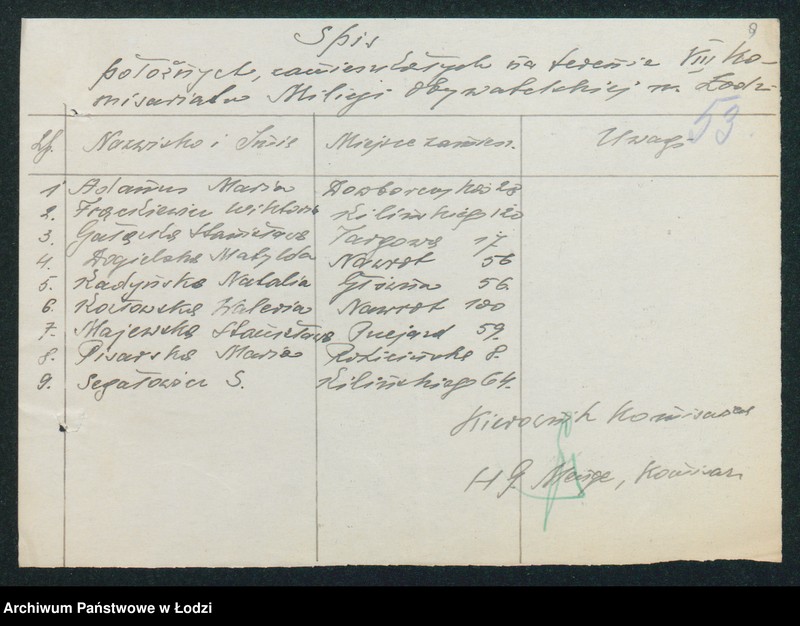 8
Spis
położnych, zamieszkałych na terenie VIII Ko-
misariatu Milicji Obywatelskiej m. Łodzi
53
Lp. Nazwisko i Imię Miejsce zamiesz. Uwagi
1 Adamus Maria Dowborczyków 28
2. Frąckiewicz Wiktoria Kilińskiego 120
3. Gałązka Stanisława Targowa 17
4. Dogielska Matylda Nawrot 56
5. Kadyńska Natalia Główna 56
6. Kozłowska Waleria Nawrot 100
7. Majewska Stanisława Przejazd 59.
8. Pisarska Maria Rokicińska 8
9. Segałowicz S. Kilińskiego 64.
Kierownik Komisariatu
H G. , Komisarz
Archiwum Państwowe w Łodzi